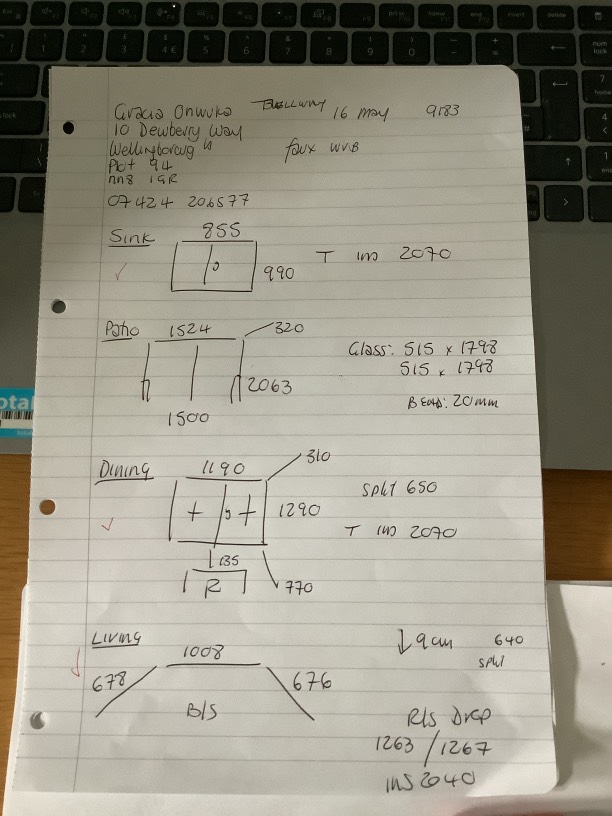 Gracia Onwuka Bellway 16 may 9183
10 Dewberry Way
Wellingboroug H faux WVB
Plot 94
nn8 1GR
07424 206577
Sink 855
990 T ins 2070
Patio 1524 320
Glass: 515 x 1798
515 x 1798
2063
Bead: 20mm
1500
Dining 1190 310
split 650
1290
T ins 2070
135
R 770
Living ↓ 9cm 640
split
1008
678 676
B/S
R/s Drop
1263 / 1267
ins 2040